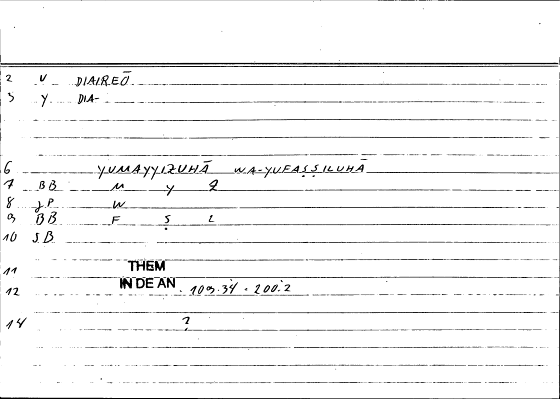 2 V DIAIREŌ
3 Y DIA-
6 YUMAYYIZUHĀ WA-YUFAṢṢILUHĀ
7 BB M Y Z
8 JP W
9 BB F Ṣ L
10 SB
11 THEM
12 IN DE AN 109.34 - 200.2
14 ?